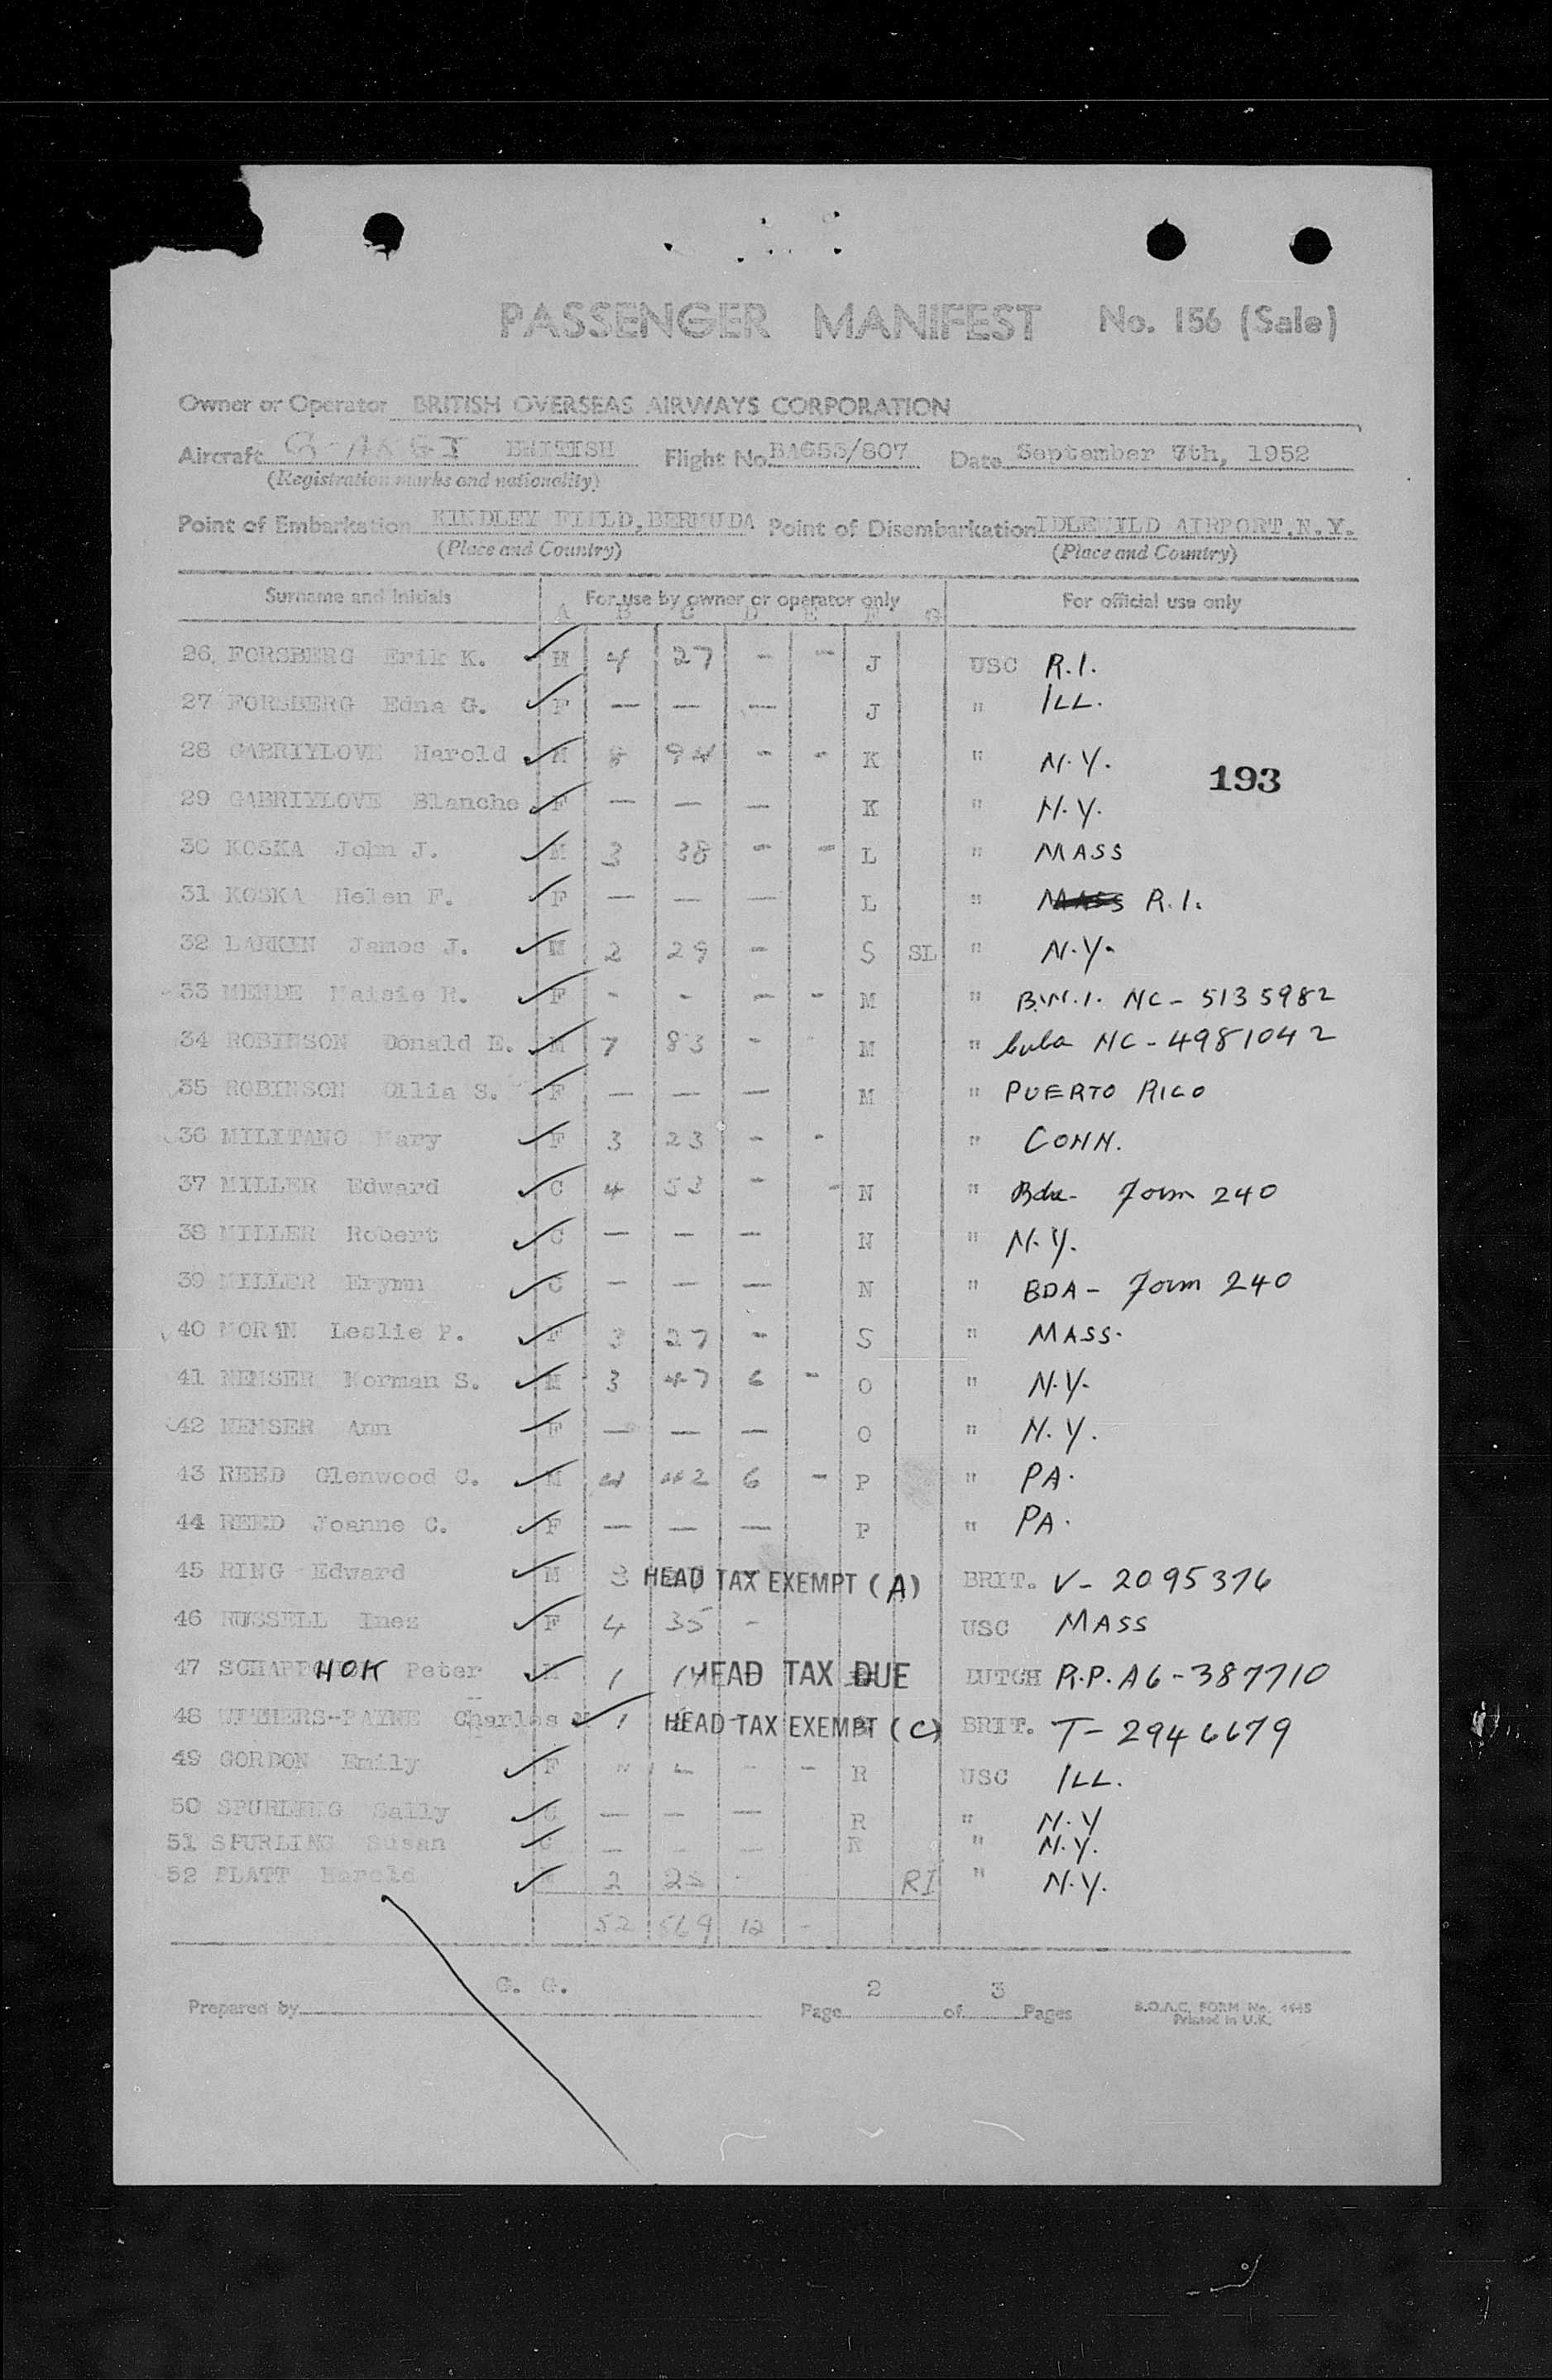 PASSENGER MANIFEST No. 156 (Sale)
Owner or Operator BRITISH OVERSEAS AIRWAYS CORPORATION
Aircraft BRITISH Flight No. BA653/807 Date September 7th, 1952
(Registration marks and nationality)
Point of Embarkation KINDLEY FIILD, BERMUDA Point of Disembarkation IDLEWILD AIRPORT.N.Y.
(Place and Country) (Place and Country)
Surname and Initials For use by owner or operator only For official use only
A B C D E F G
26. FORSBERG Erik K. M 4 27 - - J USC R.I.
27 FORSBERG Edna G. F — — — J " ILL.
28 GABRIYLOVE Harold M 94 - - K " N.Y.
193
29 GABRIYLOVE Blanche F — — — K " N.Y.
30 KOSKA John J. M 3 38 - - L " MASS
31 KOSKA Helen F. F — — — L " MASS R.I.
32 LARKIN James J. M 2 29 - S SL " N.Y.
33 MENDE Maisie R. F - - - - M " B.W.I. NC - 5135982
34 ROBINSON Donald E. M 7 83 - M " Cuba NC - 4981042
35 ROBINSON S. F — — — M " PUERTO RICO
36 MILITANO Mary F 3 23 - - " CONN.
37 MILLER Edward C 4 53 - - N " Bda - Form 240
38 MILLER Robert C — — — N " N.Y.
39 MILLER Erynn C — — — N " BDA - Form 240
40 MORAN Leslie P. F 3 27 - S " MASS.
41 NEMSER Norman S. M 3 47 6 - O " N.Y.
42 NEMSER Ann F — — — O " N.Y.
43 REED Glenwood C. M 4 42 6 - P " PA.
44 REED Joanne C. F — — — P " PA.
45 RING Edward M 3 HEAD TAX EXEMPT (A) BRIT. V - 2095376
46 RUSSELL Inez F 4 35 - USC MASS
47 HOK Peter M 1 HEAD TAX DUE DUTCH R.P. A6-387710
48 WITHERS-PAYNE Charles M 1 HEAD TAX EXEMPT (C) BRIT. T - 2946679
49 GORDON Emily F - - R USC ILL.
50 SPURLING Sally C — — — R " N.Y
51 SPURLING Susan C — — — R " N.Y.
52 PLATT Harold 2 RI " N.Y.
52 569 12 -
G. G.
Prepared by Page 2 of 3 Pages B.O.A.C. FORM No. 4445
Printed in U.K.